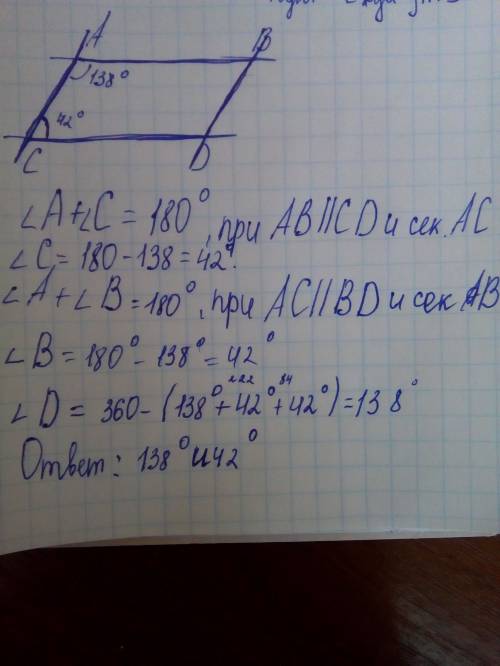 A
B
138°
42°
C
D
∠A+∠C = 180°, при AB∥CD и сек. AC
∠C = 180 - 138 = 42°.
∠A + ∠B = 180°, при AC∥BD и сек AB
∠B = 180° - 138° = 42°
222 84
∠D = 360 - (138° + 42° + 42°) = 138°
Ответ: 138° и 42°